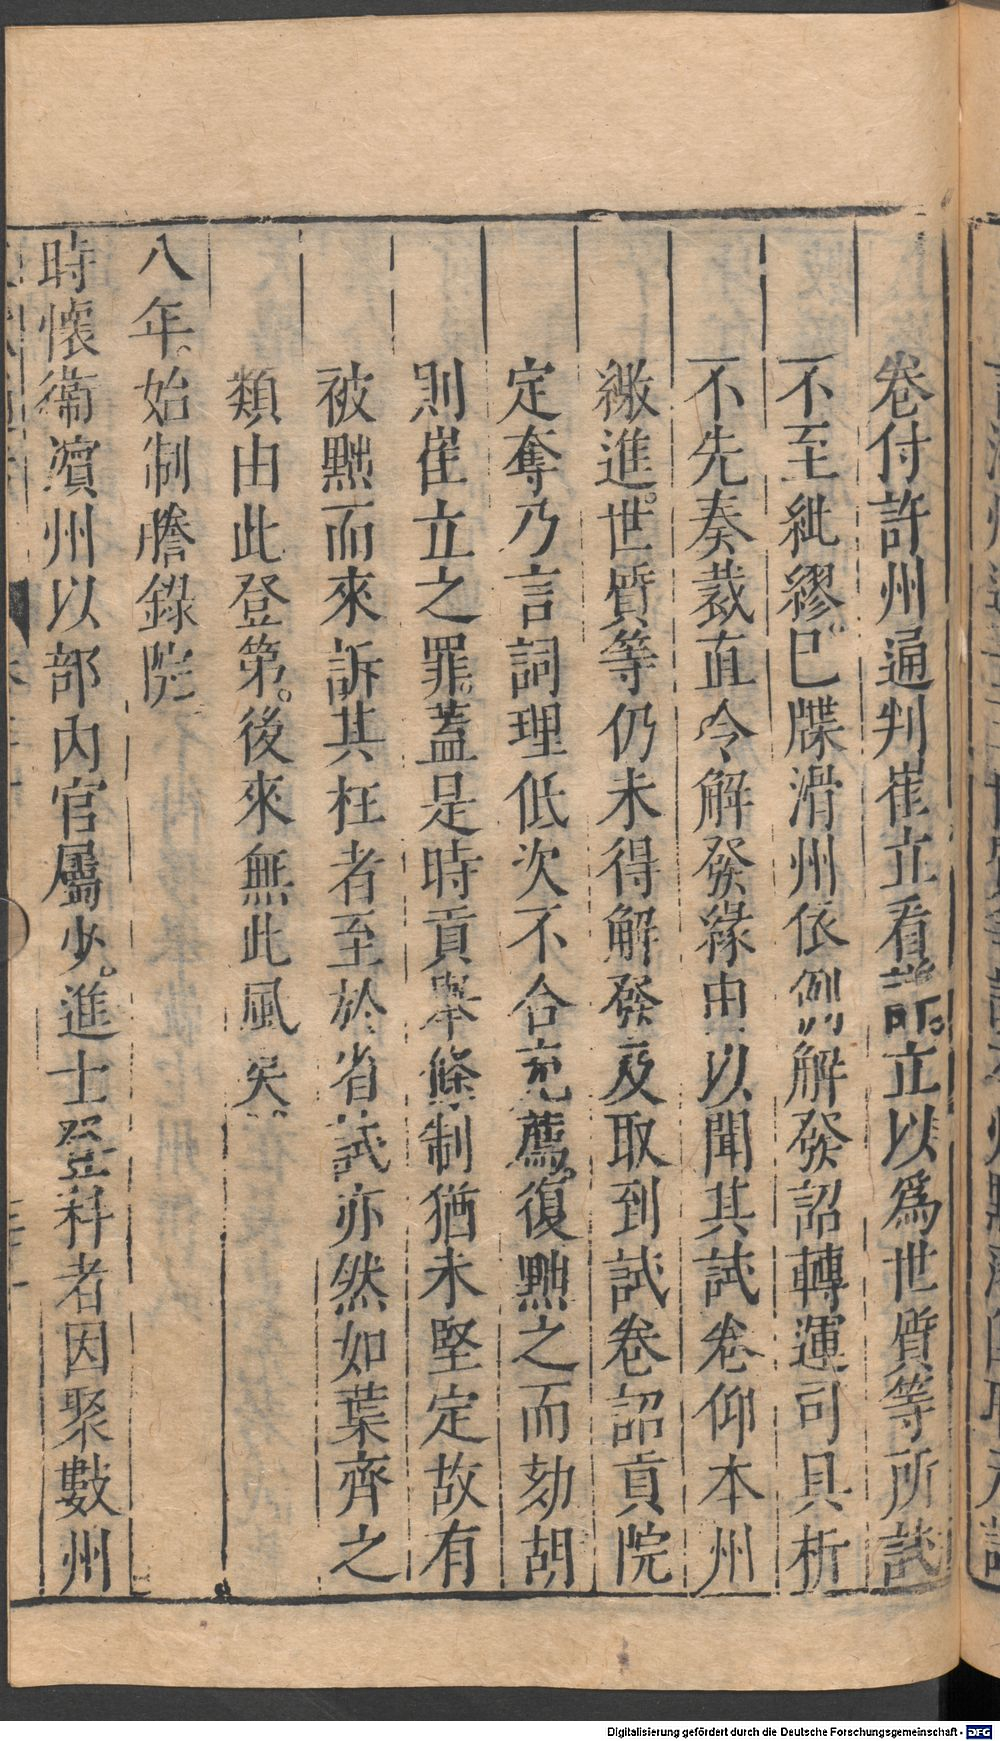 卷付許州通判崔立看詳。立以爲世質等所試
不至紕繆。已牒滑州依例解發詔轉運司具析
不先奏裁直令解發緣由以聞其試卷仰本州
繳進。世質等仍未得解發及取到試卷詔貢院
定奪乃言詞理低次不合充薦。復黜之而劾胡
則崔立之罪。蓋是時貢舉條制猶未堅定故有
被黜而來訴其枉者至於省試亦然如葉齊之
類由此登第。後來無此風矣
八年。始制謄錄院
時懷衛濵州以部內官屬少。進士登科者因聚數州
Digitalisierung gefördert durch die Deutsche Forschungsgemeinschaft - DFG